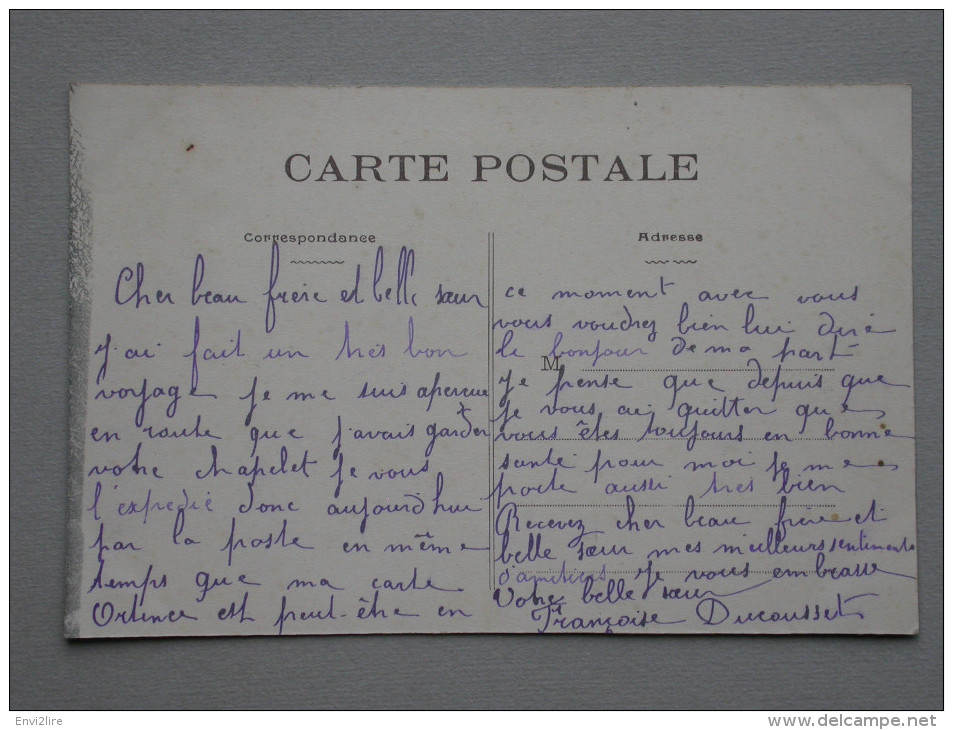 CARTE POSTALE
Correspondance
Cher beau frère et belle sœur
j'ai fait un très bon
voyage je me suis apercue
en route que j'avais garder
votre chapelet je vous
l'expedie donc aujourd'hui
par la poste en même
temps que ma carte
Ortence est peut-être en
Adresse
ce moment avec vous
vous voudrez bien lui dire
le bonjour de ma part
M
je pense que depuis que
je vous ai quitter que
vous êtes toujours en bonne
santé pour moi je me
porte aussi très bien
Recevez cher beau frère et
belle sœur mes meilleurs sentiments
d'amitiés je vous embrasse
Votre belle sœur
Françoise Ducousset
Envi2lire
http://www.delcampe.net